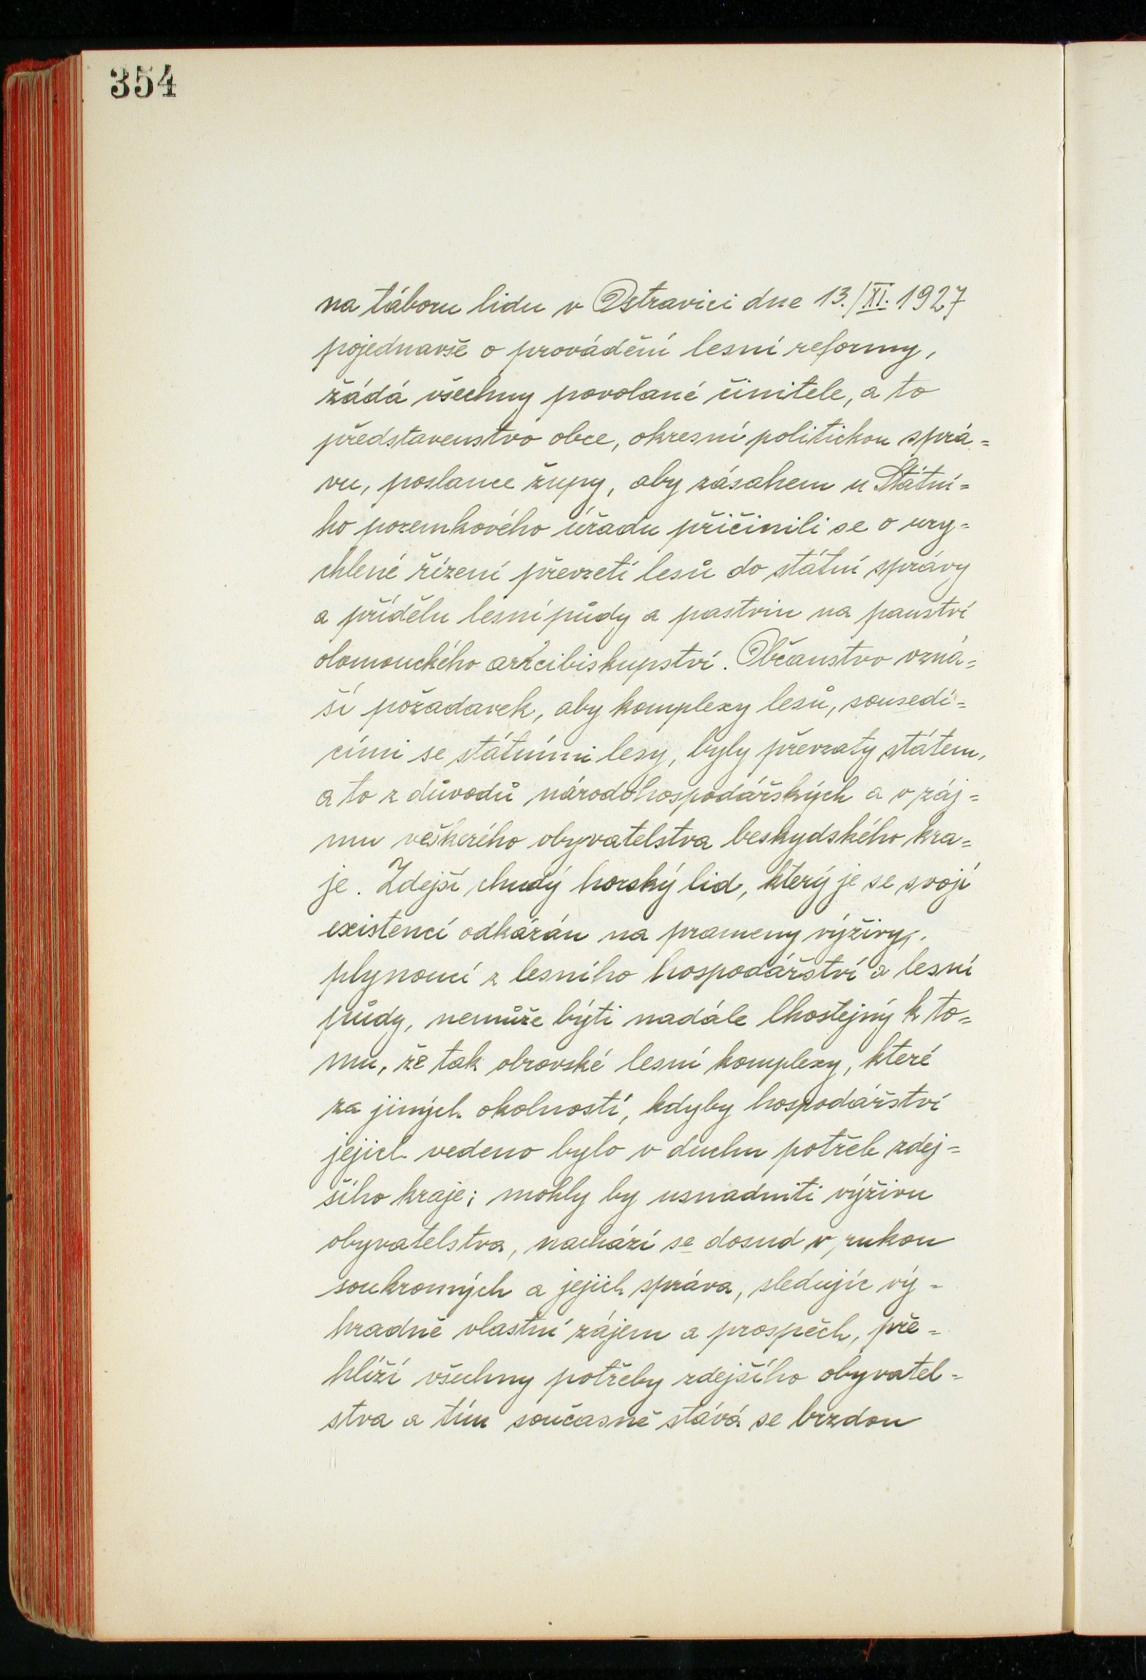 354
na táboru lidu v Ostravici dne 13./XI. 1927
pojednavše o provádění lesní reformy,
žádá všechny povolané činitele, a to
představenstvo obce, okresní politickou sprá=
vu, poslance župy, aby zásahem u Státní=
ho pozemkového úřadu přičinili se o ury=
chlené řízení převzetí lesů do státní správy
a přídělu lesní půdy a pastvin na panství
olomouckého arcibiskupství. Občanstvo vzná=
ší požadavek, aby komplexy lesů, sousedí=
cími se státními lesy, byly převzaty státem,
a to z důvodů národohospodářských a v záj=
mu veškerého obyvatelstva beskydského kra=
je. Zdejší chudý horský lid, který je se svojí
existencí odkázán na prameny výživy,
plynoucí z lesního hospodářství a lesní
půdy, nemůže býti nadále lhostejný k to=
mu, že tak obrovské lesní komplexy, které
za jiných okolností, kdyby hospodářství
jejich vedeno bylo v duchu potřeb zdej=
šího kraje; mohly by usnadniti výživu
obyvatelstva, nachází se dosud v rukou
soukromých a jejich správa, sledujíc vý=
hradně vlastní zájem a prospěch, pře=
hlíží všechny potřeby zdejšího obyvatel=
stva a tím současně stává se brzdou